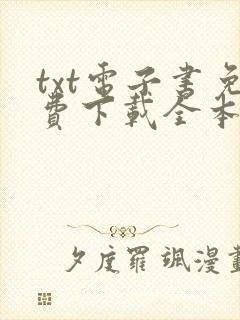 txt電子書免
費下載全本
夕度羅颯漫畫